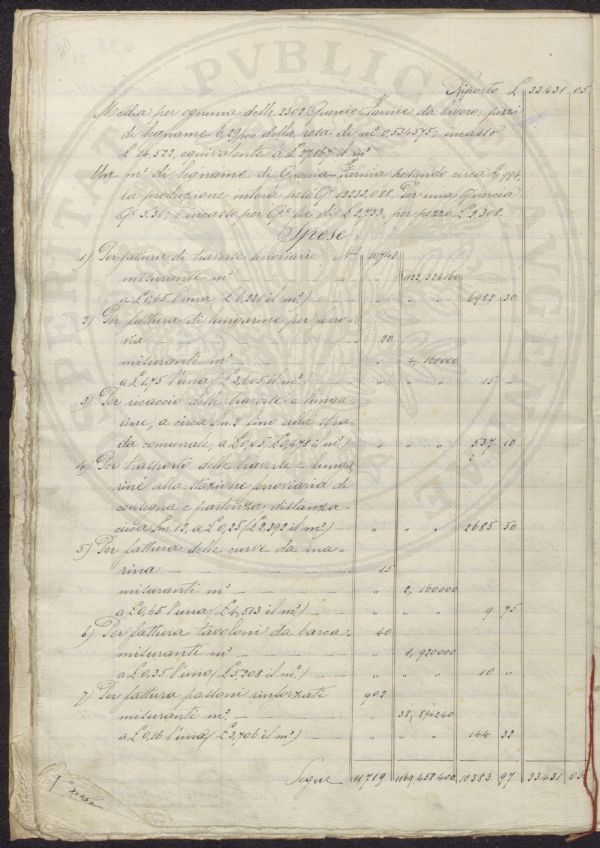 Riporto £ 33431 05
Media per ognuna delle 2302 Quercie Farnie da lavoro; pezzi
di legname 6,29/100 della resa di m.c 0,534575; incasso
£ 14.522, equivalente a £ 27,167 il m.c
Un m.c di legname di Quercia Farnia pesando circa
la produzione intera pesò Q.i 12232,088. Per una Quercia
Q.i 5.31; l'incasso per Q.e fu di £ 2,733, per pezzo £ 2,308.
Spese
1) Per fattura di traverse ferroviarie N.° 10742
misuranti m.c 1122,324160
a £ 0,65 l'una (£ 6,221 il m.c) 6982 30
2) Per fattura di lungarine per ferro-
via 20
misuranti m.c 4,160000
a £ 1,75 l'una (£ 3,605 il m.c) 15 "
3) Per ricaccio delle traverse e lunga-
rine, a circa Km. 2 fino alla stra-
da comunale, a £ 0,05 (£ 0,478 il m.c) " " " 537 10
4) Per trasporto delle traverse e lunga-
rine alla stazione ferroviaria di
consegna e partenza, distanza
circa Km. 12, a £ 0,25 (£ 2,392 il m.c) " " " 2685 50
5) Per fattura delle curve da ma-
rina 15
misuranti m.c " 2,160000
a £ 0,65 l'una (£ 4,513 il m.c) " " " 9 75
6) Per fattura tavoloni da barca 40
misuranti m.c " 1,920000
a £ 0,25 l'uno (£ 5,208 il m.c) " " " 10 "
7) Per fattura passoni rinforzati 902
misuranti m.c " 38,894240
a £ 0,16 l'una (£ 3,706 il m.c) " " " 144 32
Segue 11719 1169,458400 10383 97 33431 05
PVBLICAE